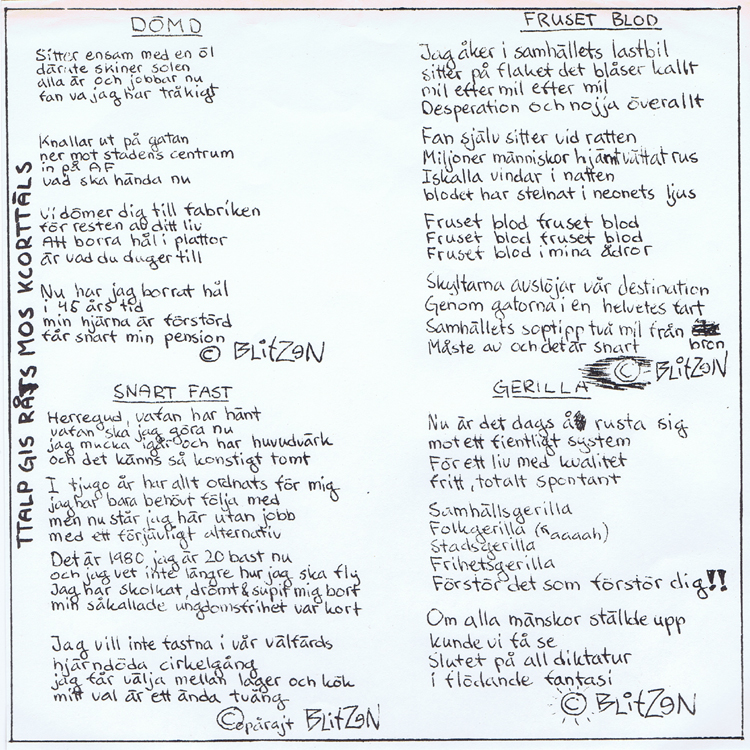 DÖMD
Sitter ensam med en öl
därute skiner solen
alla är och jobbar nu
fan va jag har tråkigt
Knallar ut på gatan
ner mot stadens centrum
in på AF
vad ska hända nu
Vi dömer dig till fabriken
för resten av ditt liv
Att borra hål i plattor
är vad du duger till
Nu har jag borrat hål
i 45 års tid
min hjärna är förstörd
får snart min pension
© BLitZeN
SNART FAST
Herregud, vafan har hänt
vafan ska jag göra nu
jag mucka igår och har huvudvärk
och det känns så konstigt tomt
I tjugo år har allt ordnats för mig
jag har bara behövt följa med
men nu står jag här utan jobb
med ett förjävligt alternativ
Det är 1980 jag är 20 bast nu
och jag vet inte längre hur jag ska fly
Jag har skolkat, drömt & supit mig bort
min såkallade ungdomsfrihet var kort
Jag vill inte fastna i vår välfärds
hjärndöda cirkelgång
jag får välja mellan lager och kök
mitt val är ett ända tvång
©opårajt BLitZeN
FRUSET BLOD
Jag åker i samhällets lastbil
sitter på flaket det blåser kallt
mil efter mil efter mil
Desperation och nojja överallt
Fan själv sitter vid ratten
Miljoner människor hjärntvättat rus
Iskalla vindar i natten
blodet har stelnat i neonets ljus
Fruset blod fruset blod
Fruset blod fruset blod
Fruset blod i mina ådror
Skyltarna avslöjar vår destination
Genom gatorna i en helvetes fart
Samhällets soptipp två mil från bron
Måste av och det är snart
© BLitZeN
GERILLA
Nu är det dags å rusta sig
mot ett fientligt system
För ett liv med kvalitet
fritt, totalt spontant
Samhällsgerilla
Folkgerilla (Raaaah)
Stadsgerilla
Frihetsgerilla
Förstör det som förstör dig!!
Om alla mänskor ställde upp
kunde vi få se
Slutet på all diktatur
i flödande fantasi
© BLitZeN
TTALP GIS RÅTS MOS KCORTTÄLS